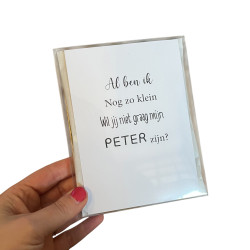 Al ben ik
Nog zo klein
Wil jij niet graag mijn
PETER zijn?